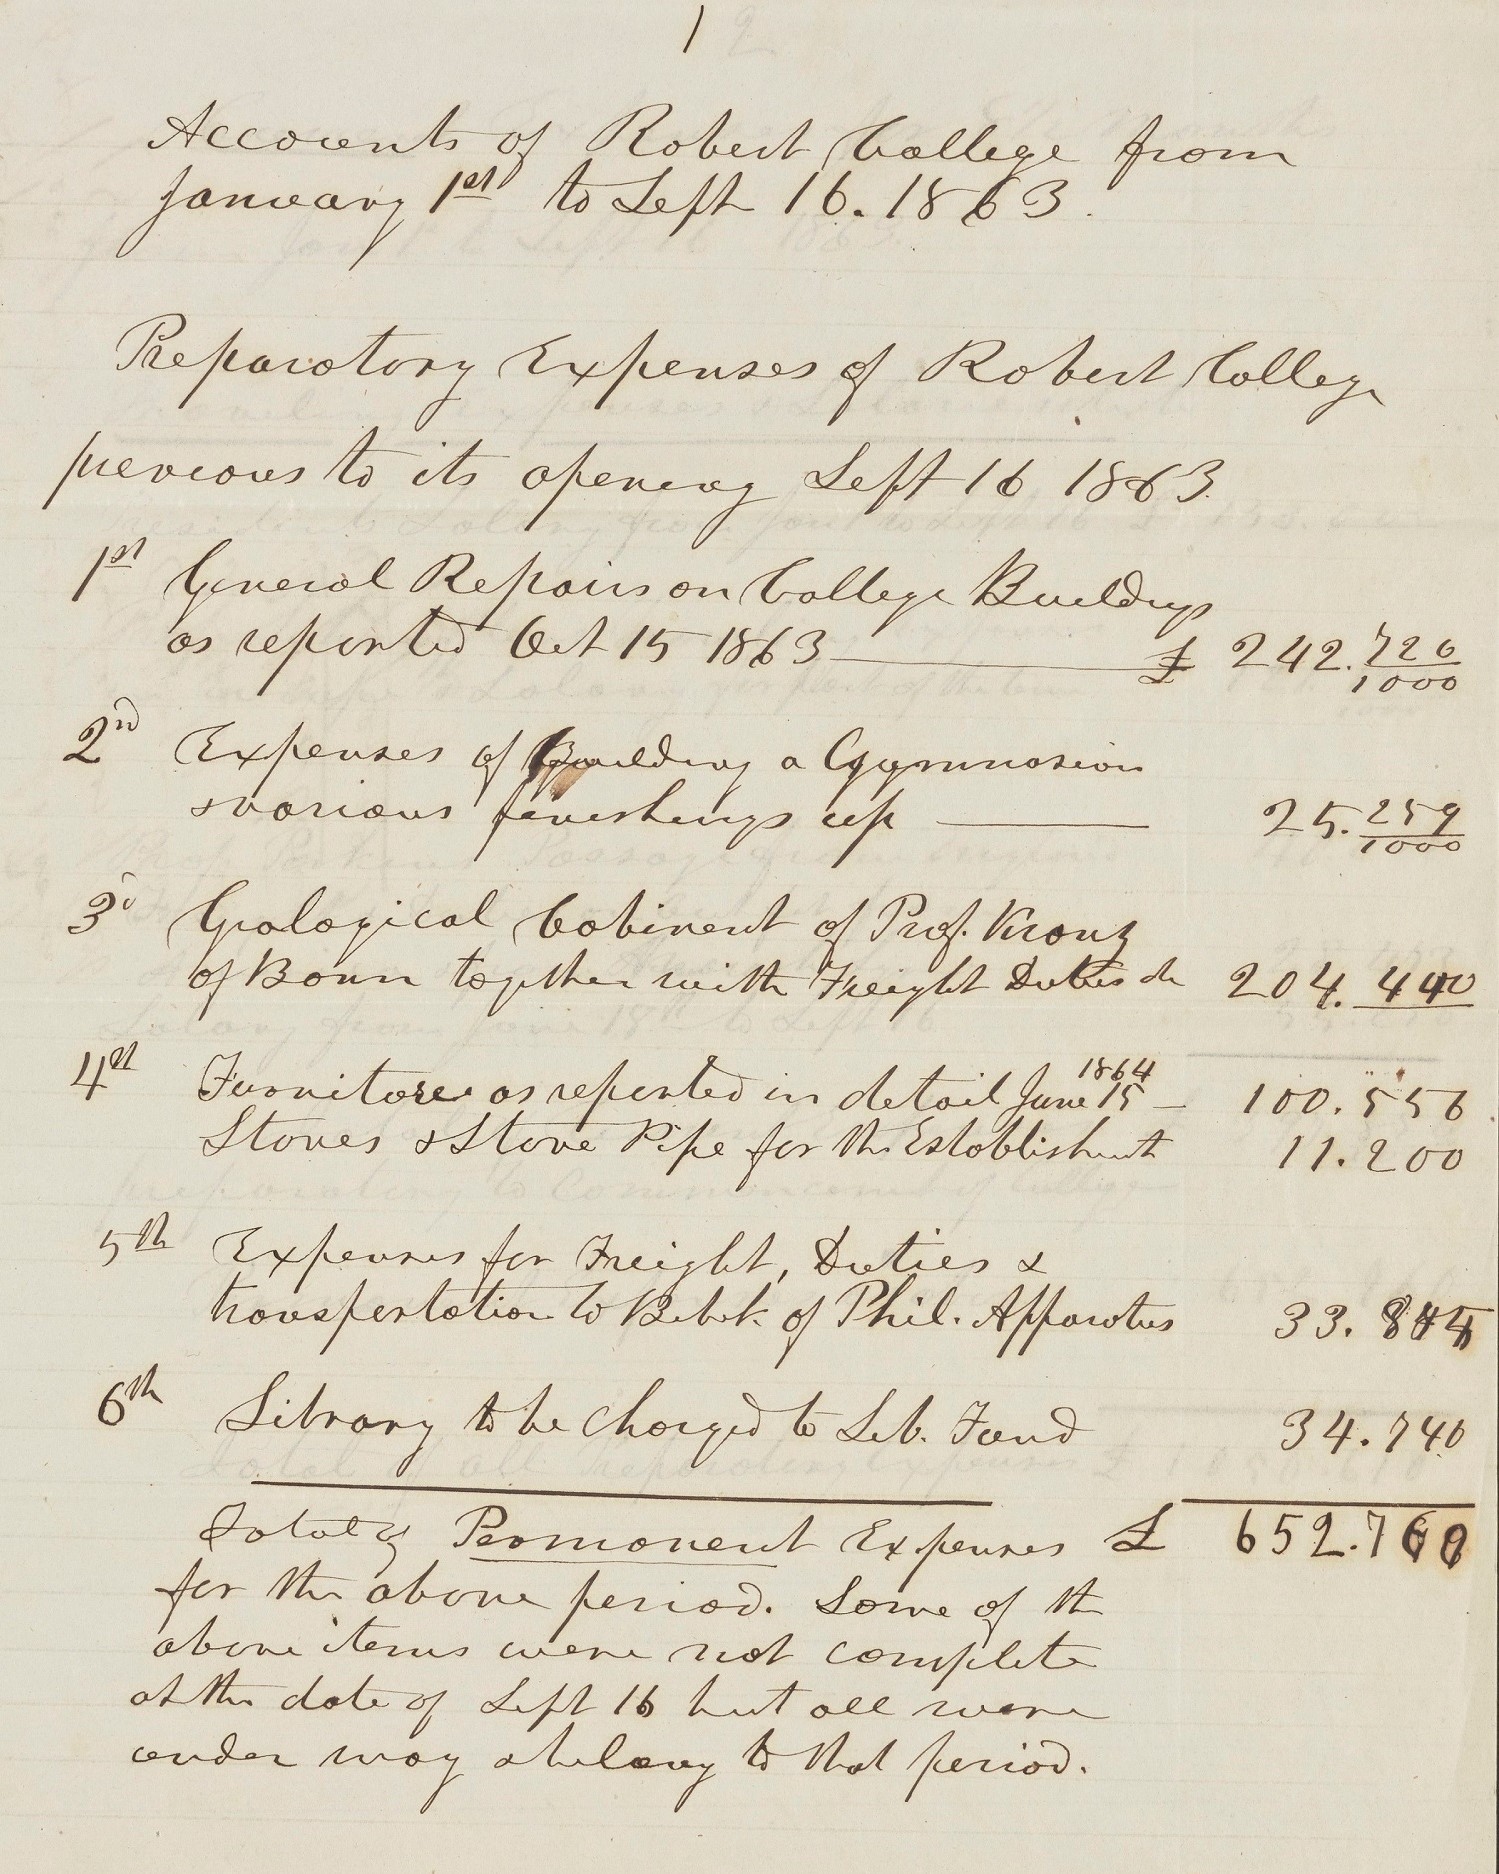 1
Accounts of Robert College from
January 1st to Sept 16. 1863.
Preparatory Expenses of Robert College
previous to its opening Sept 16 1863.
1st General Repairs on College Buildings
as reported Oct 15 1863 — £ 242. 720/1000
2nd Expenses of Building a Gymnasium
& various finishings up — 25. 259/1000
3d Geological Cabinet of Prof. Krantz
of Bonn together with Freight Duties &c 204. 440
4th Furniture as reported in detail June 15 1864 — 100. 556
Stoves & Stove Pipe for the Establishment 11. 200
5th Expenses for Freight, Duties &
transportation to Bebek of Phil. Apparatus 33. 845
6th Library to be charged to Lib. Fund 34. 740
Total of Permanent Expenses £ 652. 760
for the above period. Some of the
above items were not complete
at the date of Sept 16 but all were
under way & belong to that period.